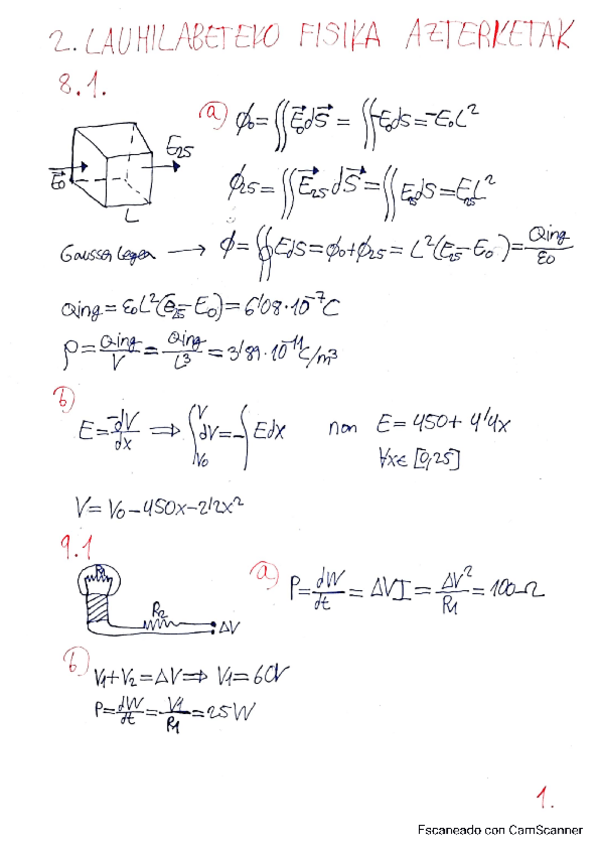 2. LAUHILABETEKO FISIKA AZTERKETAK
8.1.
a) ϕ₀=∬E⃗₀dS⃗ = ∬-E₀dS=-E₀L²
E⃗₀ E₂₅ L
ϕ₂₅=∬E⃗₂₅dS⃗=∬E₂₅dS=E₂₅L²
Gaussen legea → ϕ=∯EdS=ϕ₀+ϕ₂₅= L²(E₂₅-E₀)=Qing/ε₀
Qing=ε₀L²(E₂₅-E₀)=6'08·10⁻⁷C
ρ=Qing/V=Qing/L³=3'89·10⁻¹¹C/m³
b)
E=-dV/dx ⟹ ∫_{V₀}^{V}dV=-∫Edx non E=450+4'4x
∀x∈[0,25]
V=V₀-450x-2'2x²
9.1
R₁ R₂ ΔV
a) P=dW/dt=ΔVI=ΔV²/R₁=100Ω
b) V₁+V₂=ΔV⟹V₁=60V
P=dW/dt=V₁/R₁=25W
1.
Escaneado con CamScanner